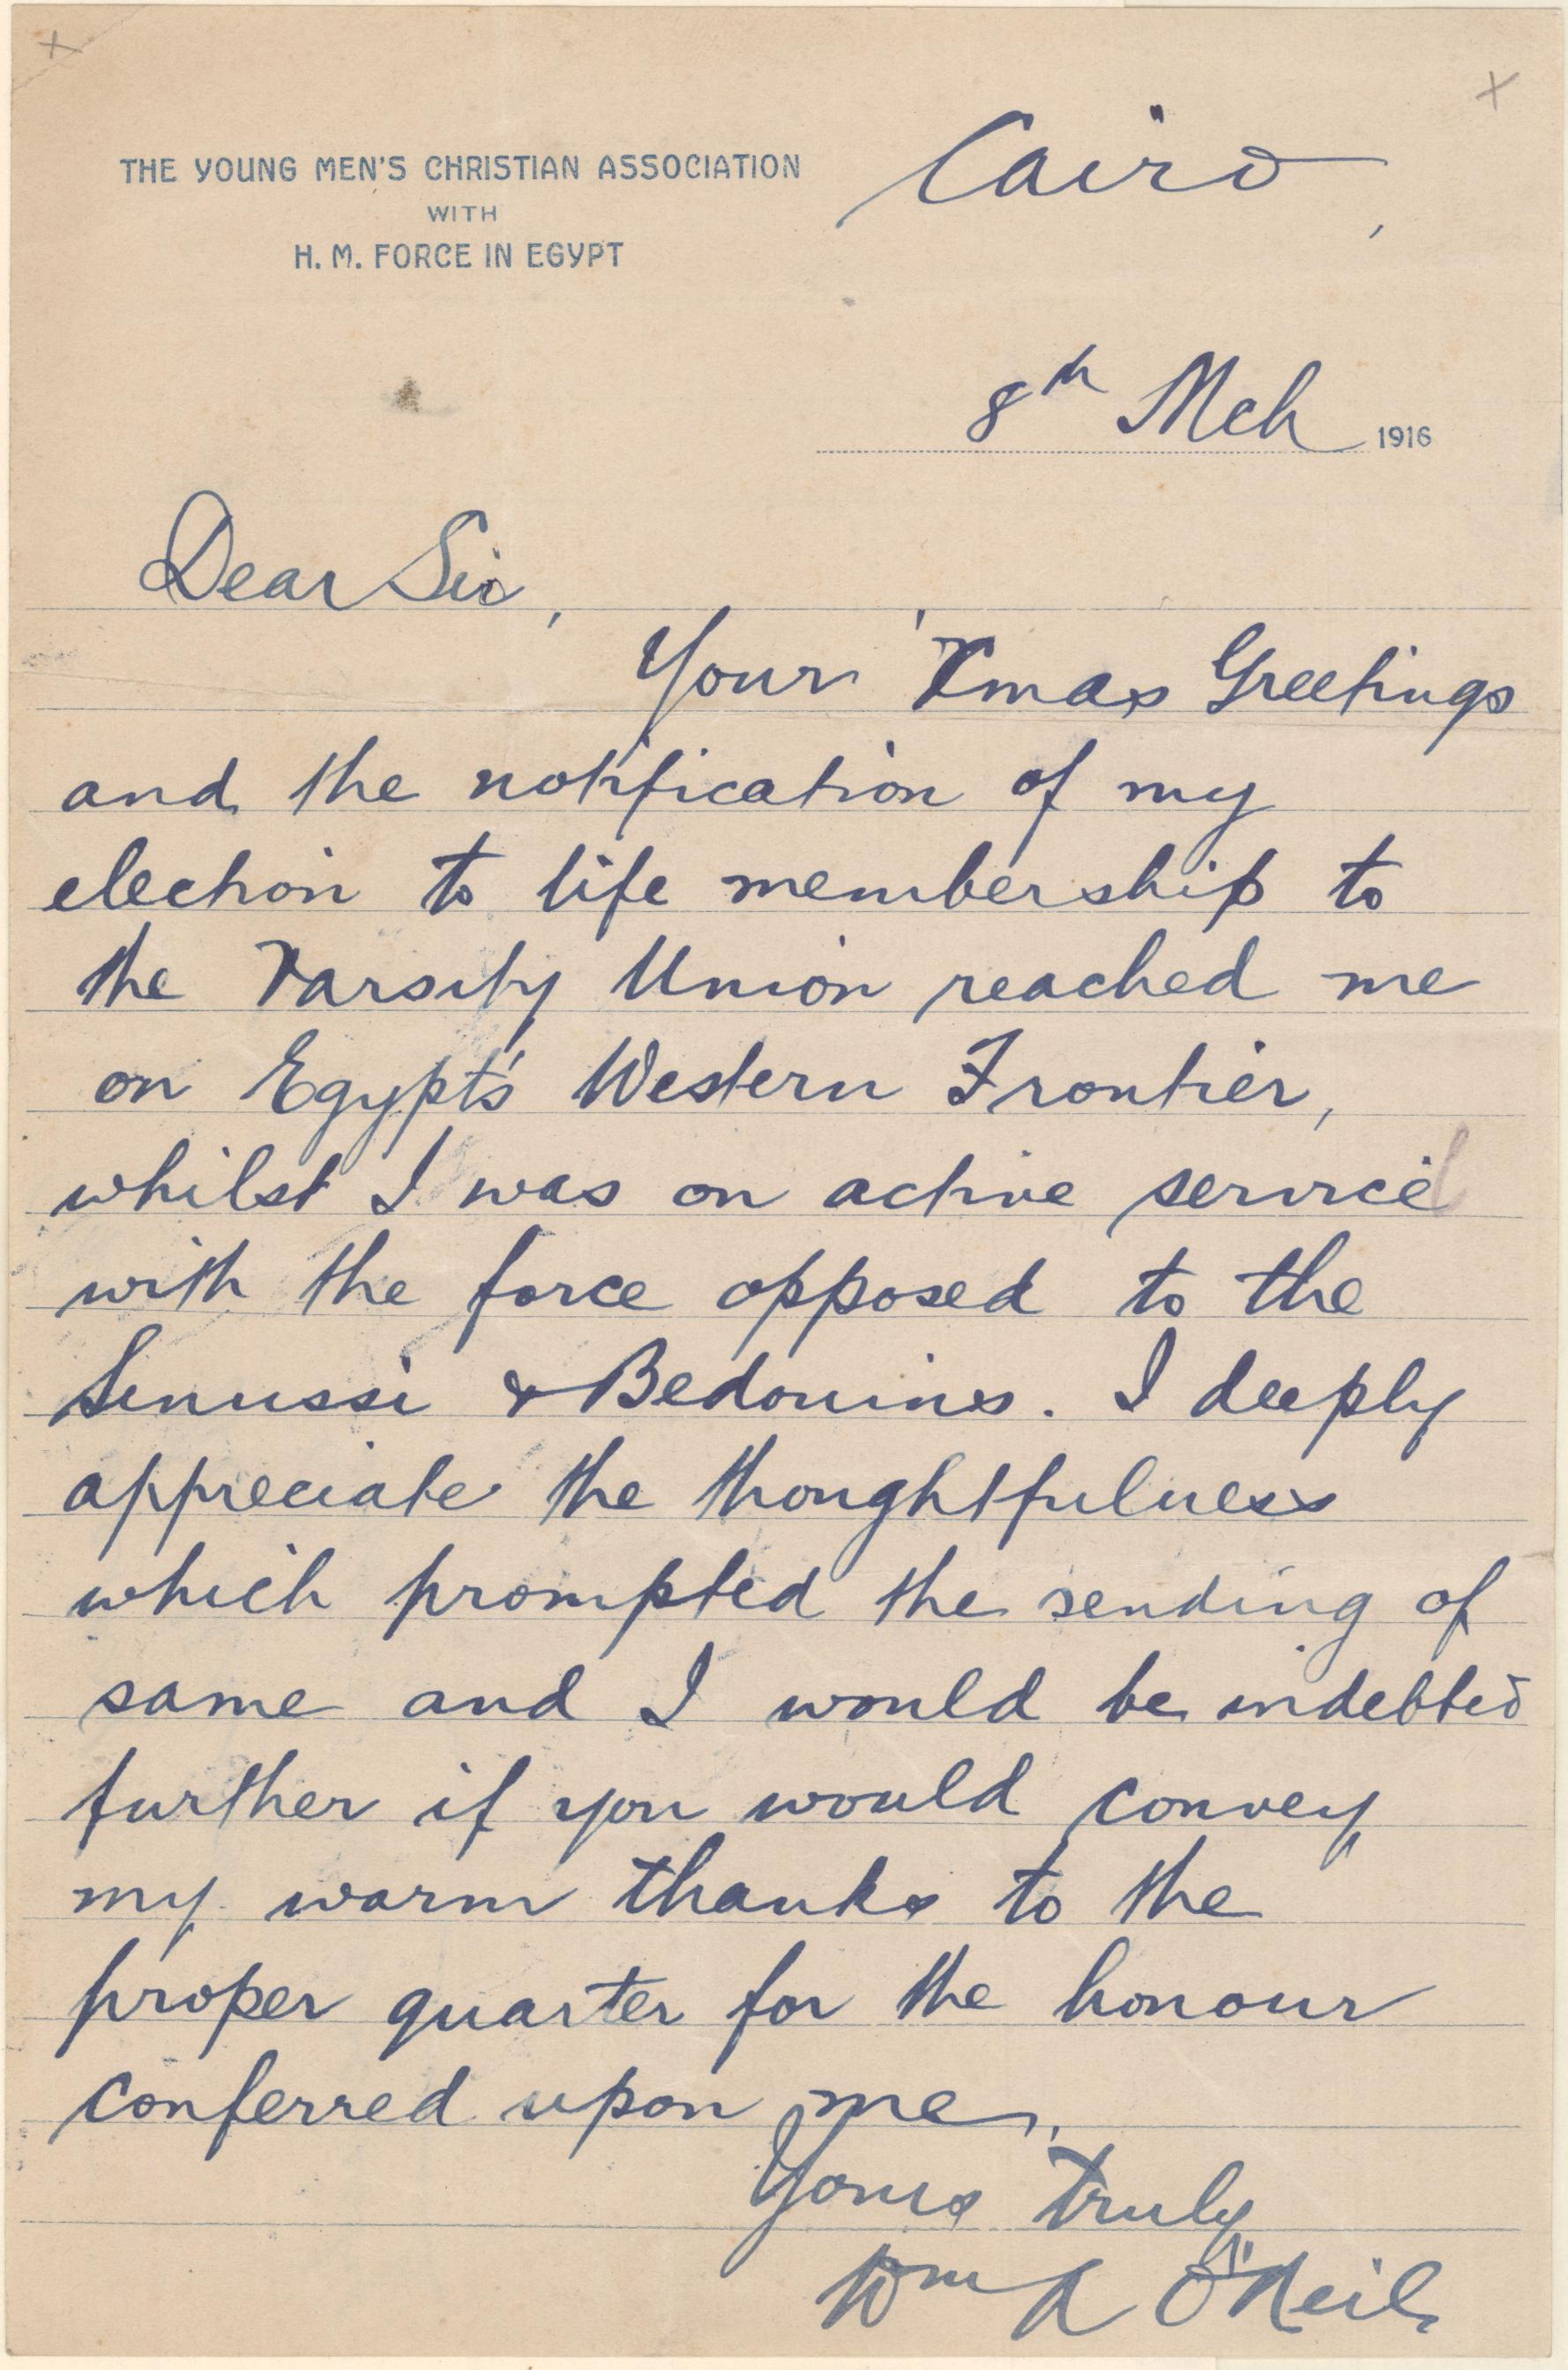 THE YOUNG MEN'S CHRISTIAN ASSOCIATION
WITH
H. M. FORCE IN EGYPT
Cairo,
8th Mch 1916
Dear Sir,
Your Xmas Greetings
and the notification of my
election to life membership to
the Varsity Union reached me
on Egypt's Western Frontier,
whilst I was on active service
with the force opposed to the
Senussi & Bedouins. I deeply
appreciate the thoughtfulness
which prompted the sending of
same and I would be indebted
further if you would convey
my warm thanks to the
proper quarter for the honour
conferred upon me.
Yours truly
Wm A O'Neil